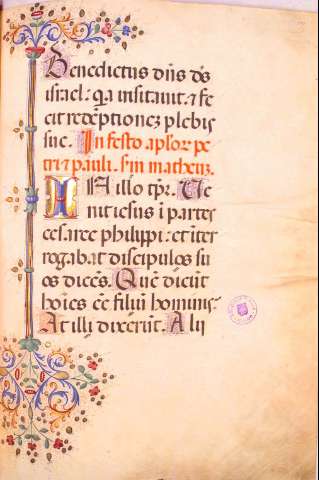 Benedictus dñs ds
israel: qa visitauit ⁊ fe
cit redẽptionez plebis
sue. In festo aplor pe
tri ⁊ pauli. sm matheuz.
IN illo tpr. Ue
nit iesus ĩ partes
cesaree philippi: et iter
rogabat discipulos su
os dicẽs. Quẽ dicũt
hoĩes eẽ filiũ hominis.
At illi dixerũt. Alii